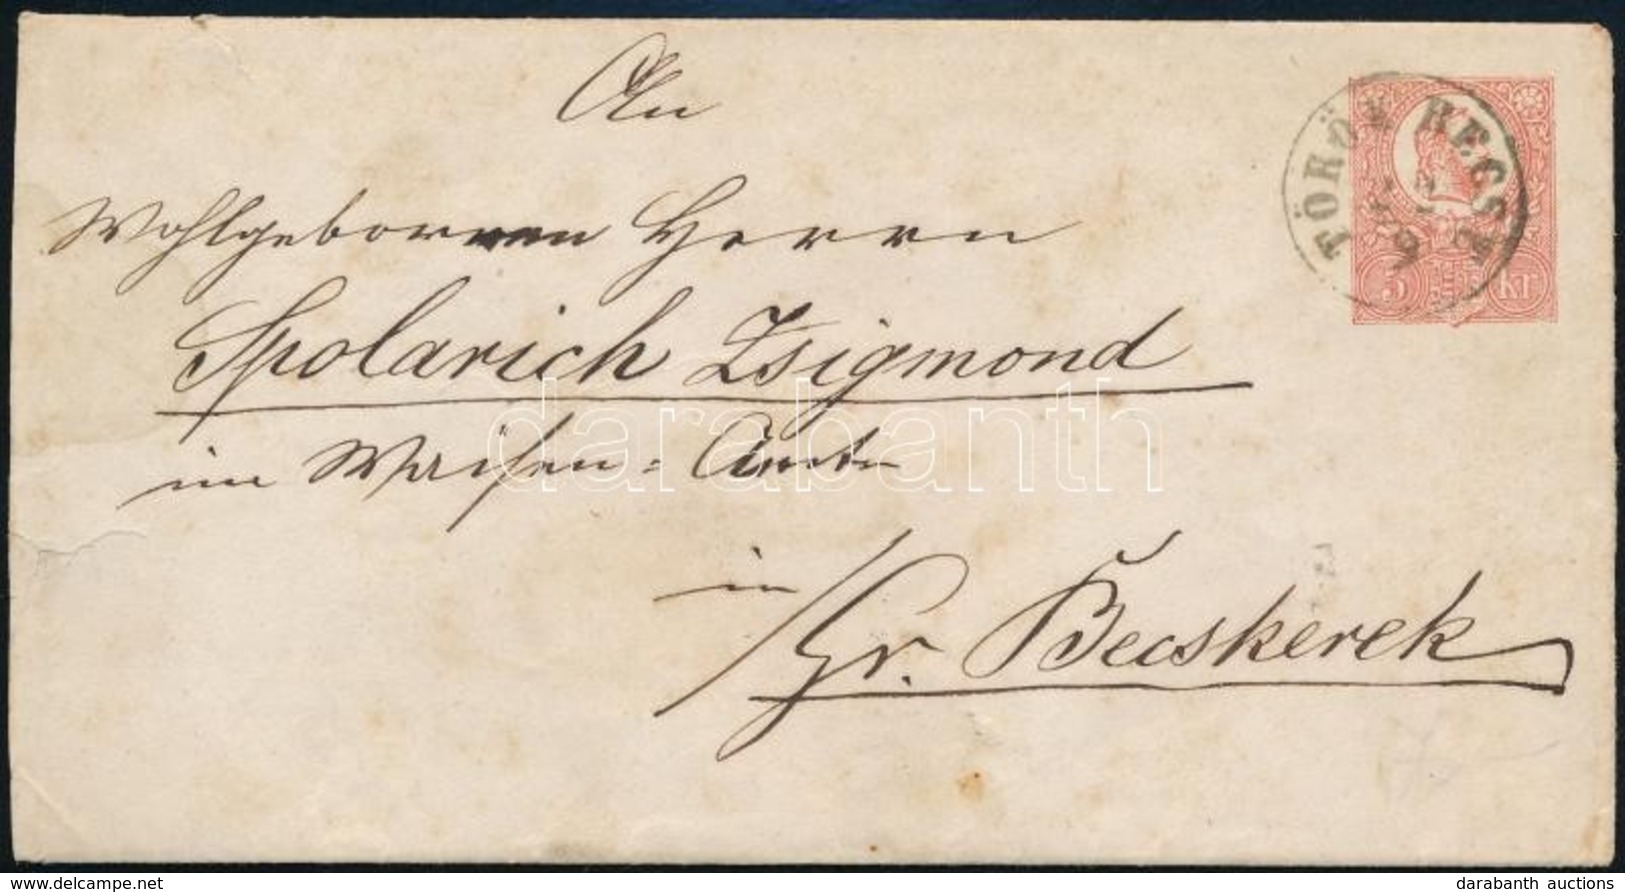 An
Wohlgeborenen Herrn
Spolarich Zsigmond
im Waisen = Amte
in
Gr. Becskerek
TÖRÖK BECSE
5 Kr
darabanth
www.delcampe.net
darabanth auctions